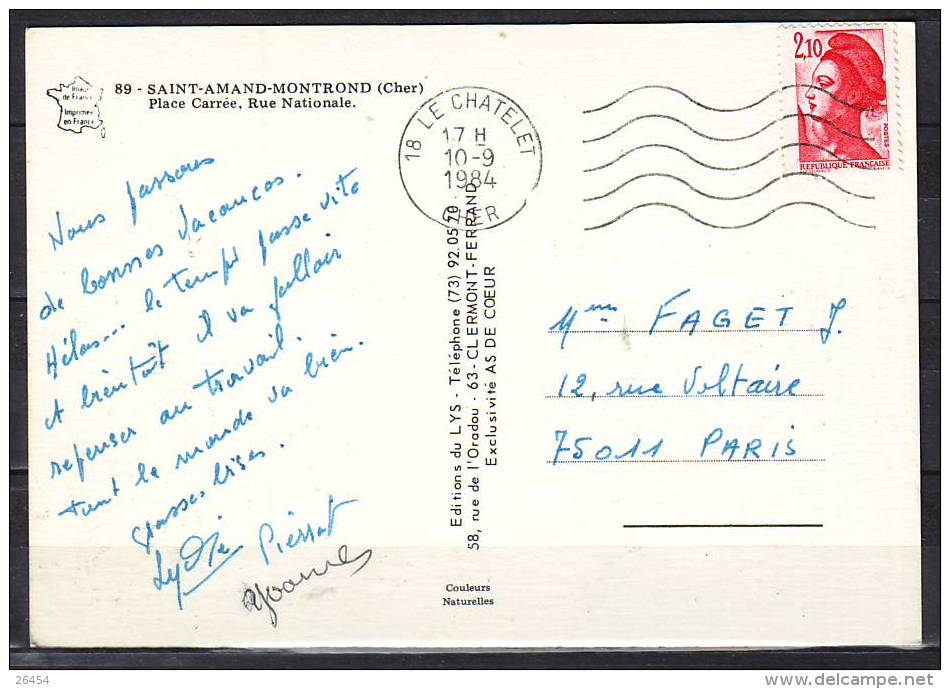 89 - SAINT-AMAND-MONTROND (Cher)
Place Carrée, Rue Nationale.
Image
de France
Imprimée
en France
18 LE CHATELET
17 H
10-9
1984
CHER
2,10
POSTES
REPUBLIQUE FRANÇAISE
Nous passons
de bonnes vacances.
Hélas... le temps passe vite
et bientôt il va falloir
repenser au travail.
Tout le monde va bien.
Grosses bises.
Lydie Pierrot
Editions du LYS - Téléphone (73) 92.05.70
58, rue de l'Oradou - 63-CLERMONT-FERRAND
Exclusivité AS DE COEUR
Mme FAGET J.
12, rue Voltaire
75011 PARIS
Couleurs
Naturelles
26454
delcampe.net